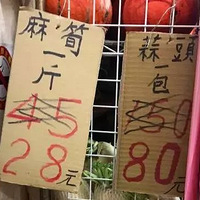 麻筍
一斤
45
28元
蒜頭
一包
50
80元